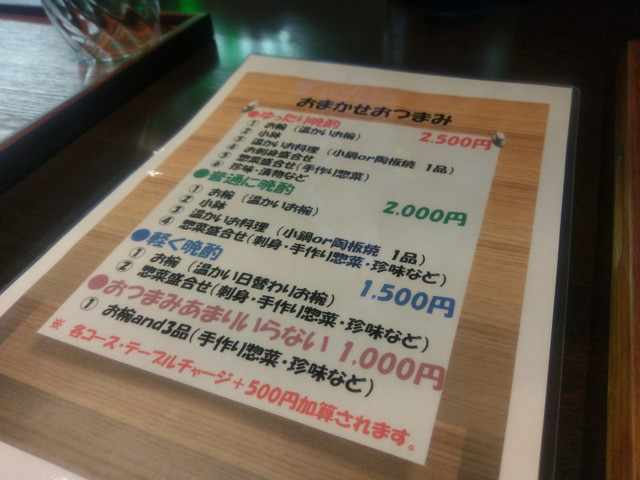 おまかせおつまみ
●ゆったり晩酌 2.500円
① お椀（温かいお椀）
② 小鉢
③ 温かいお料理（小鍋or陶板焼 1品）
④ お刺身盛合せ
⑤ 惣菜盛合せ（手作り惣菜）
珍味・漬物など
●普通に晩酌 2.000円
① お椀（温かいお椀）
② 小鉢
③ 温かいお料理（小鍋or陶板焼 1品）
④ 惣菜盛合せ（刺身・手作り惣菜・珍味など）
●軽く晩酌 1.500円
① お椀（温かい日替わりお椀）
② 惣菜盛合せ（刺身・手作り惣菜・珍味など）
●おつまみあまりいらない 1.000円
① お椀and3品（手作り惣菜・珍味など）
※ 各コース・テーブルチャージ＋500円加算されます。